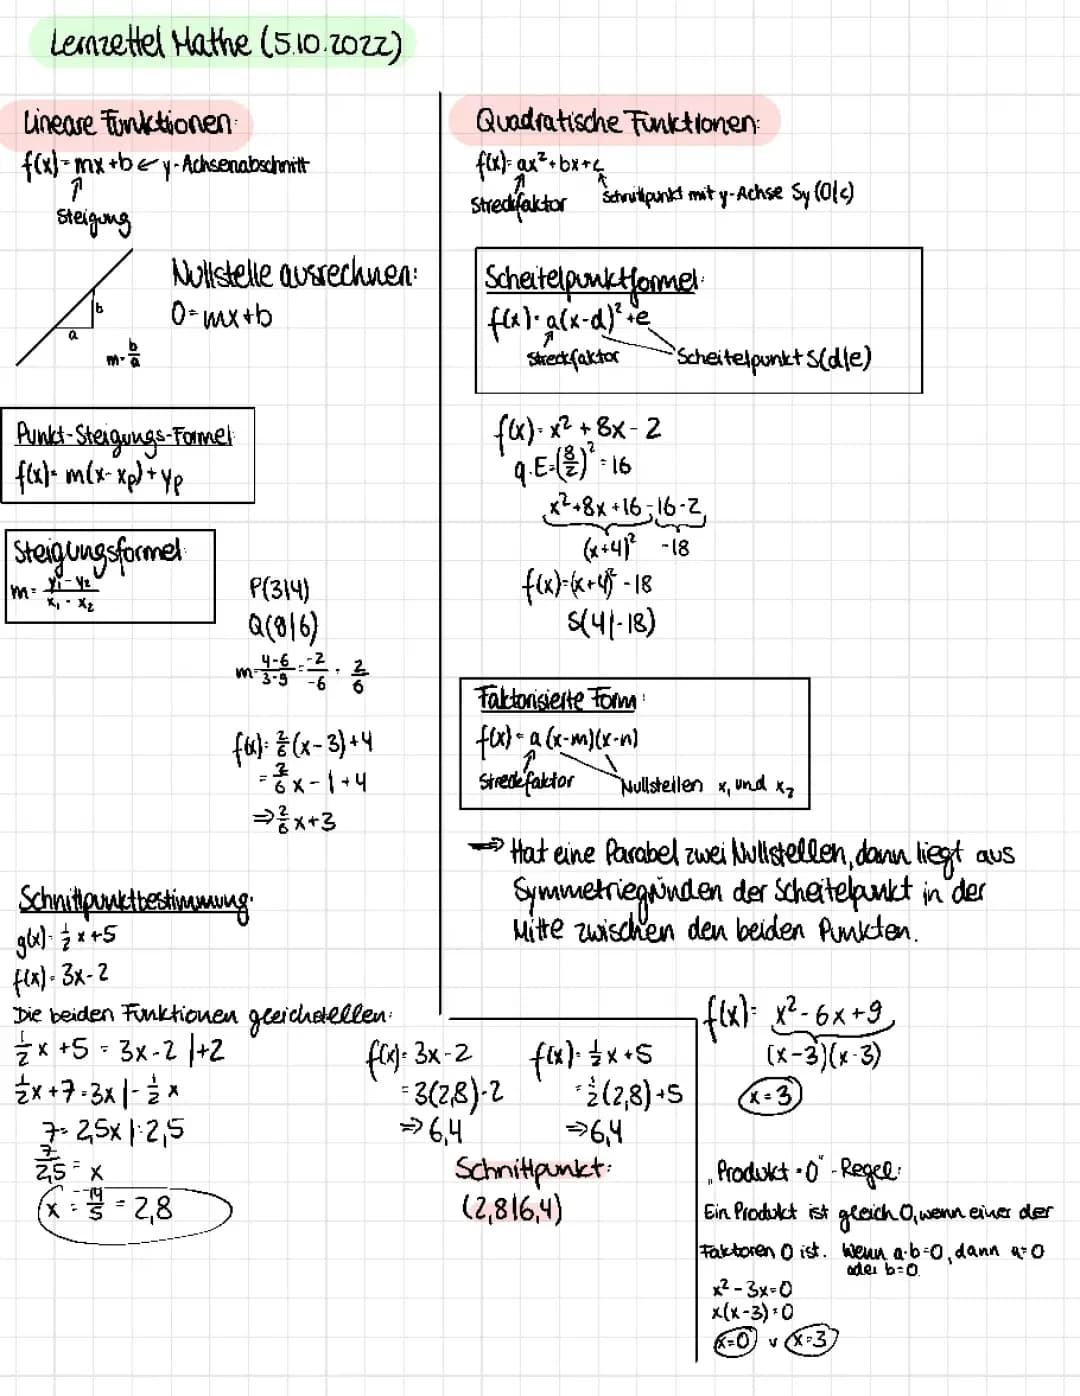 Lernzettel Mathe (5.10.2022)
Lineare Funktionen:
f(x) = mx + b ← y-Achsenabschnitt
↑
Steigung
b
a
m = b/a
Nullstelle ausrechnen:
0 = mx + b
Punkt-Steigungs-Formel:
f(x) = m(x - xp) + yp
Steigungsformel:
m = y₁ - y₂ / x₁ - x₂
P(3|4)
Q(9|6)
m = 4-6/3-9 = -2/-6 = 2/6
f(x) = 2/6 (x - 3) + 4
= 2/6 x - 1 + 4
⇒ 2/6 x + 3
Schnittpunktbestimmung:
g(x) = 1/2 x + 5
f(x) = 3x - 2
Die beiden Funktionen gleichstellen:
1/2 x + 5 = 3x - 2 | + 2
1/2 x + 7 = 3x | - 1/2 x
7 = 2,5x | : 2,5
7/2,5 = x
x = 14/5 = 2,8
f(x) = 3x - 2
= 3(2,8) - 2
⇒ 6,4
f(x) = 1/2 x + 5
= 1/2 (2,8) + 5
⇒ 6,4
Schnittpunkt:
(2,8|6,4)
Quadratische Funktionen:
f(x) = ax² + bx + c
Streckfaktor
Schnittpunkt mit y-Achse Sy (0|c)
Scheitelpunktformel:
f(x) = a(x - d)² + e
Streckfaktor
Scheitelpunkt S(d|e)
f(x) = x² + 8x - 2
q.E = (8/2)² = 16
x² + 8x + 16 - 16 - 2
(x+4)² -18
f(x) = (x+4)² - 18
S(4|-18)
Faktorisierte Form:
f(x) = a (x-m)(x-n)
Streckfaktor
Nullstellen x₁ und x₂
⇒ Hat eine Parabel zwei Nullstellen, dann liegt aus
Symmetriegründen der Scheitelpunkt in der
Mitte zwischen den beiden Punkten.
f(x) = x² - 6x + 9
(x-3)(x-3)
x = 3
„Produkt = 0" - Regel:
Ein Produkt ist gleich 0, wenn einer der
Faktoren 0 ist. Wenn a·b=0, dann a=0
oder b=0.
x² - 3x = 0
x(x-3) = 0
x=0 v x=3